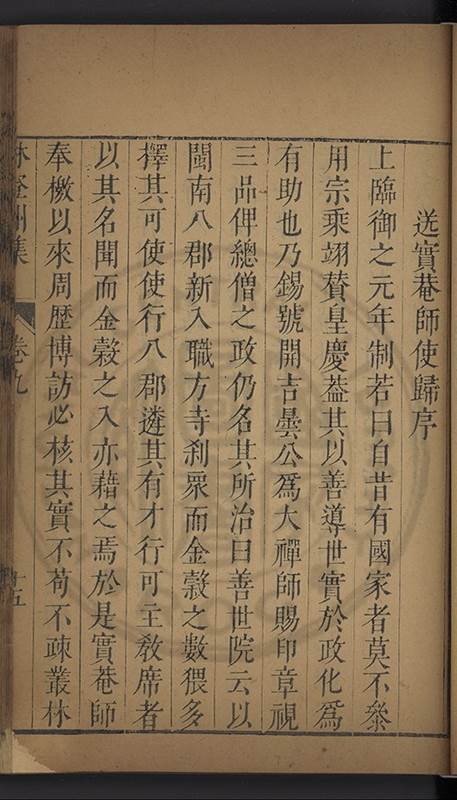 送實菴師使歸序
上臨御之元年制若曰自昔有國家者莫不叅
用宗乘翊賛皇慶葢其以善導世實於政化爲
有助也乃錫號開吉曇公爲大禪師賜印章視
三品俾總僧之政仍名其所治曰善世院云以
閩南八郡新入職方寺刹眾而金榖之數猥多
擇其可使使行八郡遴其有才行可主敎席者
以其名聞而金榖之入亦藉之焉於是實菴師
奉檄以來周歴博訪必核其實不苟不疎叢林
林登州集 卷九 十五